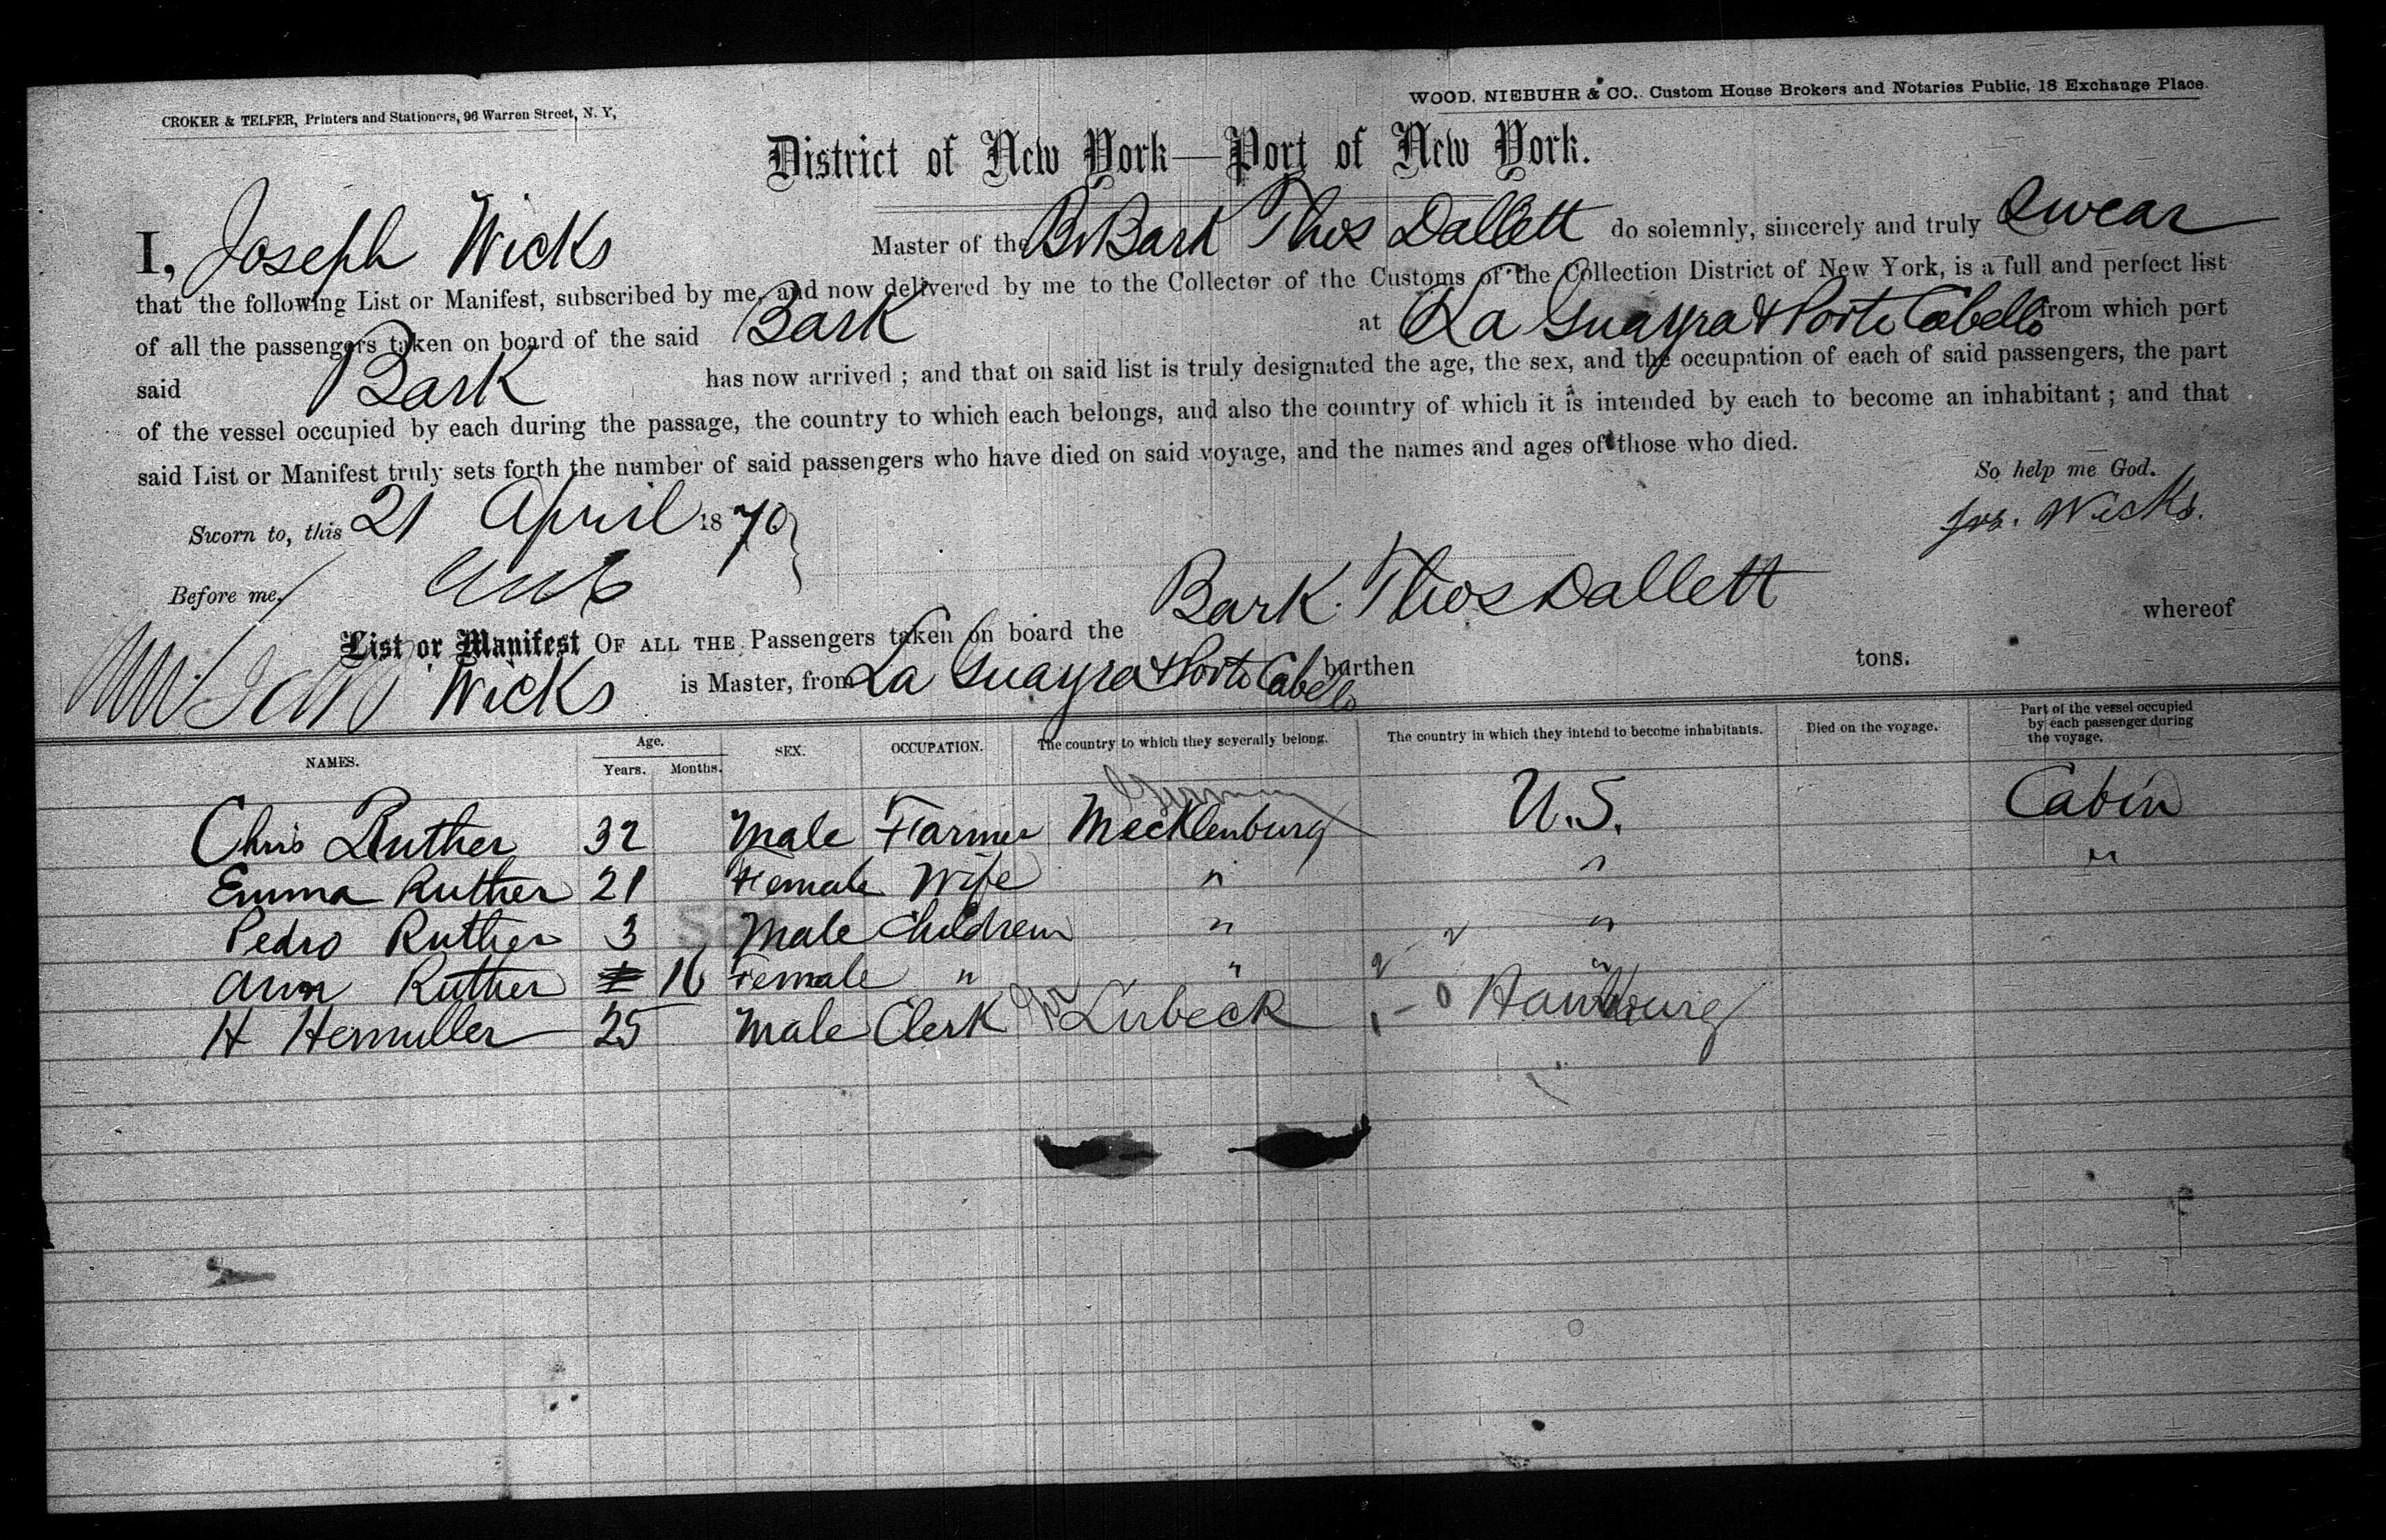 CROKER & TELFER, Printers and Stationers, 96 Warren Street, N. Y,
WOOD, NIEBUHR & CO., Custom House Brokers and Notaries Public, 18 Exchange Place.
District of New York—Port of New York.
I, Joseph Wicks Master of the Br Bark Thos Dallett do solemnly, sincerely and truly Swear
that the following List or Manifest, subscribed by me, and now delivered by me to the Collector of the Customs of the Collection District of New York, is a full and perfect list
of all the passengers taken on board of the said Bark at La Guayra & Porto Cabello from which port
said Bark has now arrived ; and that on said list is truly designated the age, the sex, and the occupation of each of said passengers, the part
of the vessel occupied by each during the passage, the country to which each belongs, and also the country of which it is intended by each to become an inhabitant ; and that
said List or Manifest truly sets forth the number of said passengers who have died on said voyage, and the names and ages of those who died.
So help me God.
Sworn to, this 21 April 1870
Jos. Wicks.
Before me,
List or Manifest OF ALL THE Passengers taken on board the Bark Thos Dallett whereof
Wicks is Master, from La Guayra & Porto Cabello burthen tons.
NAMES. Age. Years. Months. SEX. OCCUPATION. The country to which they severally belong. The country in which they intend to become inhabitants. Died on the voyage. Part of the vessel occupied by each passenger during the voyage.
German
Chris Ruther 32 Male Farmer Mecklenburg U.S. Cabin
Emma Ruther 21 Female Wife " " "
Pedro Ruther 3 Male Children " "
Ann Ruther 16 Female " " "
H Hemuller 25 Male Clerk Lubeck Hamburg